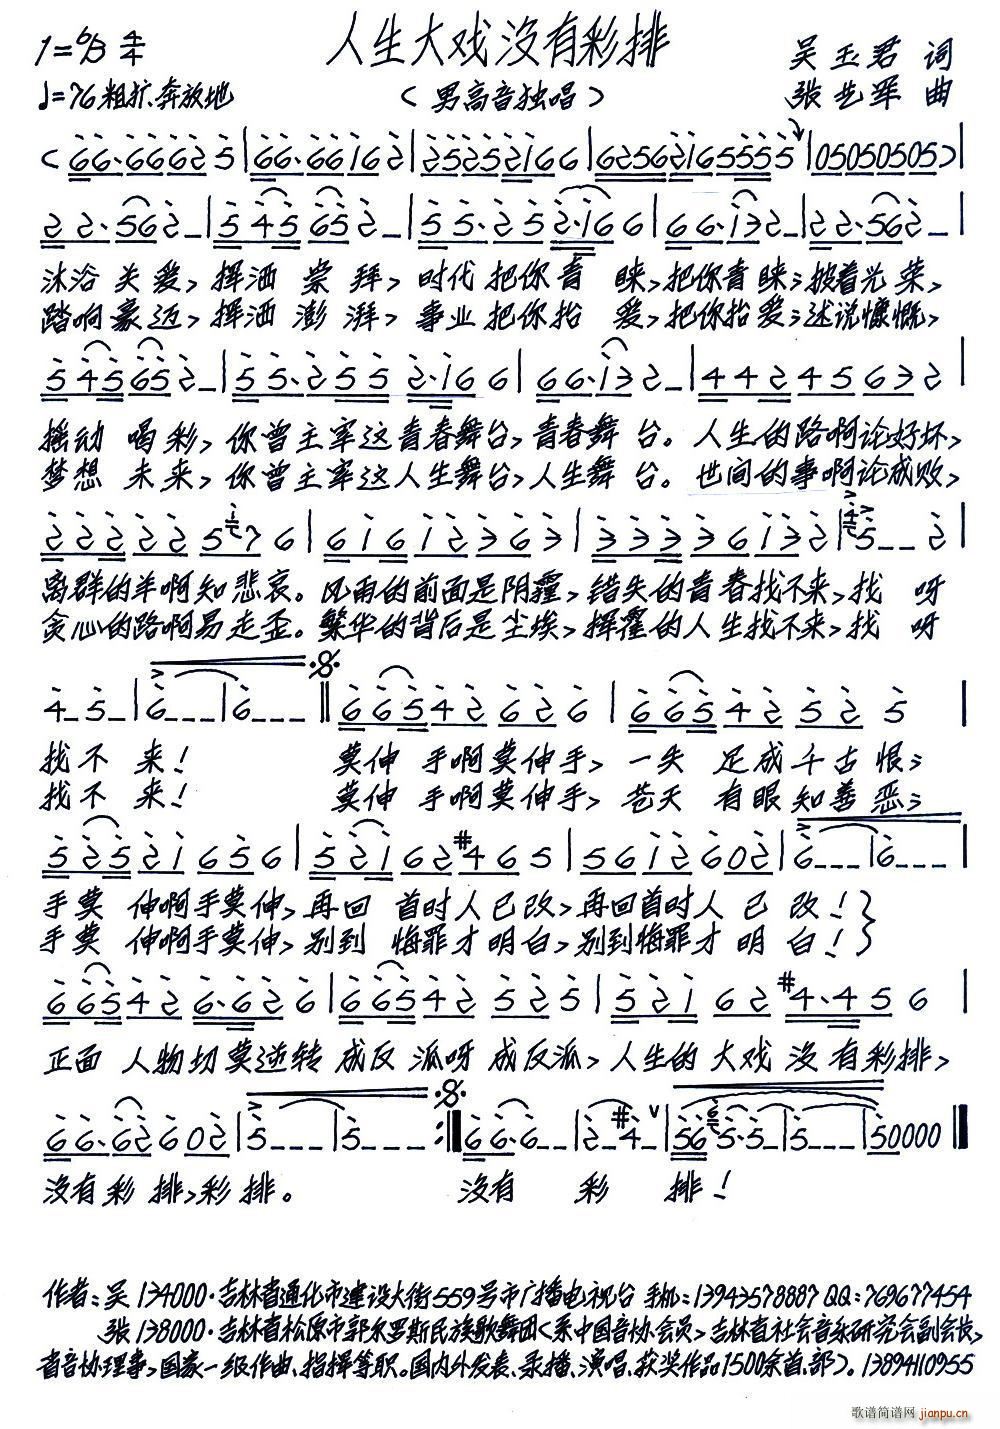 人生大戏没有彩排
1=♭B 4/4
吴玉君 词
♩=76 粗犷、奔放地
(男高音独唱)
张艺军 曲
沐浴关爱,挥洒崇拜,时代把你青睐,把你青睐;披着光荣,
踏响豪迈,挥洒澎湃,事业把你抬爱,把你抬爱;述说慷慨,
摇动喝彩,你曾主宰这青春舞台,青春舞台。人生的路啊论好坏,
梦想未来,你曾主宰这人生舞台,人生舞台。世间的事啊论成败,
离群的羊啊知悲哀。风雨的前面是阴霾,错失的青春找不来,找呀
贪心的路啊易走歪。繁华的背后是尘埃,挥霍的人生找不来,找呀
找不来! 莫伸手啊莫伸手,一失足成千古恨;
找不来! 莫伸手啊莫伸手,苍天有眼知善恶;
手莫伸啊手莫伸,再回首时人已改,再回首时人已改!
手莫伸啊手莫伸,别到悔罪才明白,别到悔罪才明白!
正面人物切莫逆转成反派呀成反派,人生的大戏没有彩排,
没有彩排,彩排。 没有彩排!
作者:吴 134000·吉林省通化市建设大街559号市广播电视台 手机:13943578887 QQ:769677454
张 138000·吉林省松原市郭尔罗斯民族歌舞团<系中国音协会员>吉林省社会音乐研究会副会长,
省音协理事,国家一级作曲、指挥等职。国内外发表、录播、演唱、获奖作品1500余首、部)。13894110955
歌谱简谱网 jianpu.cn